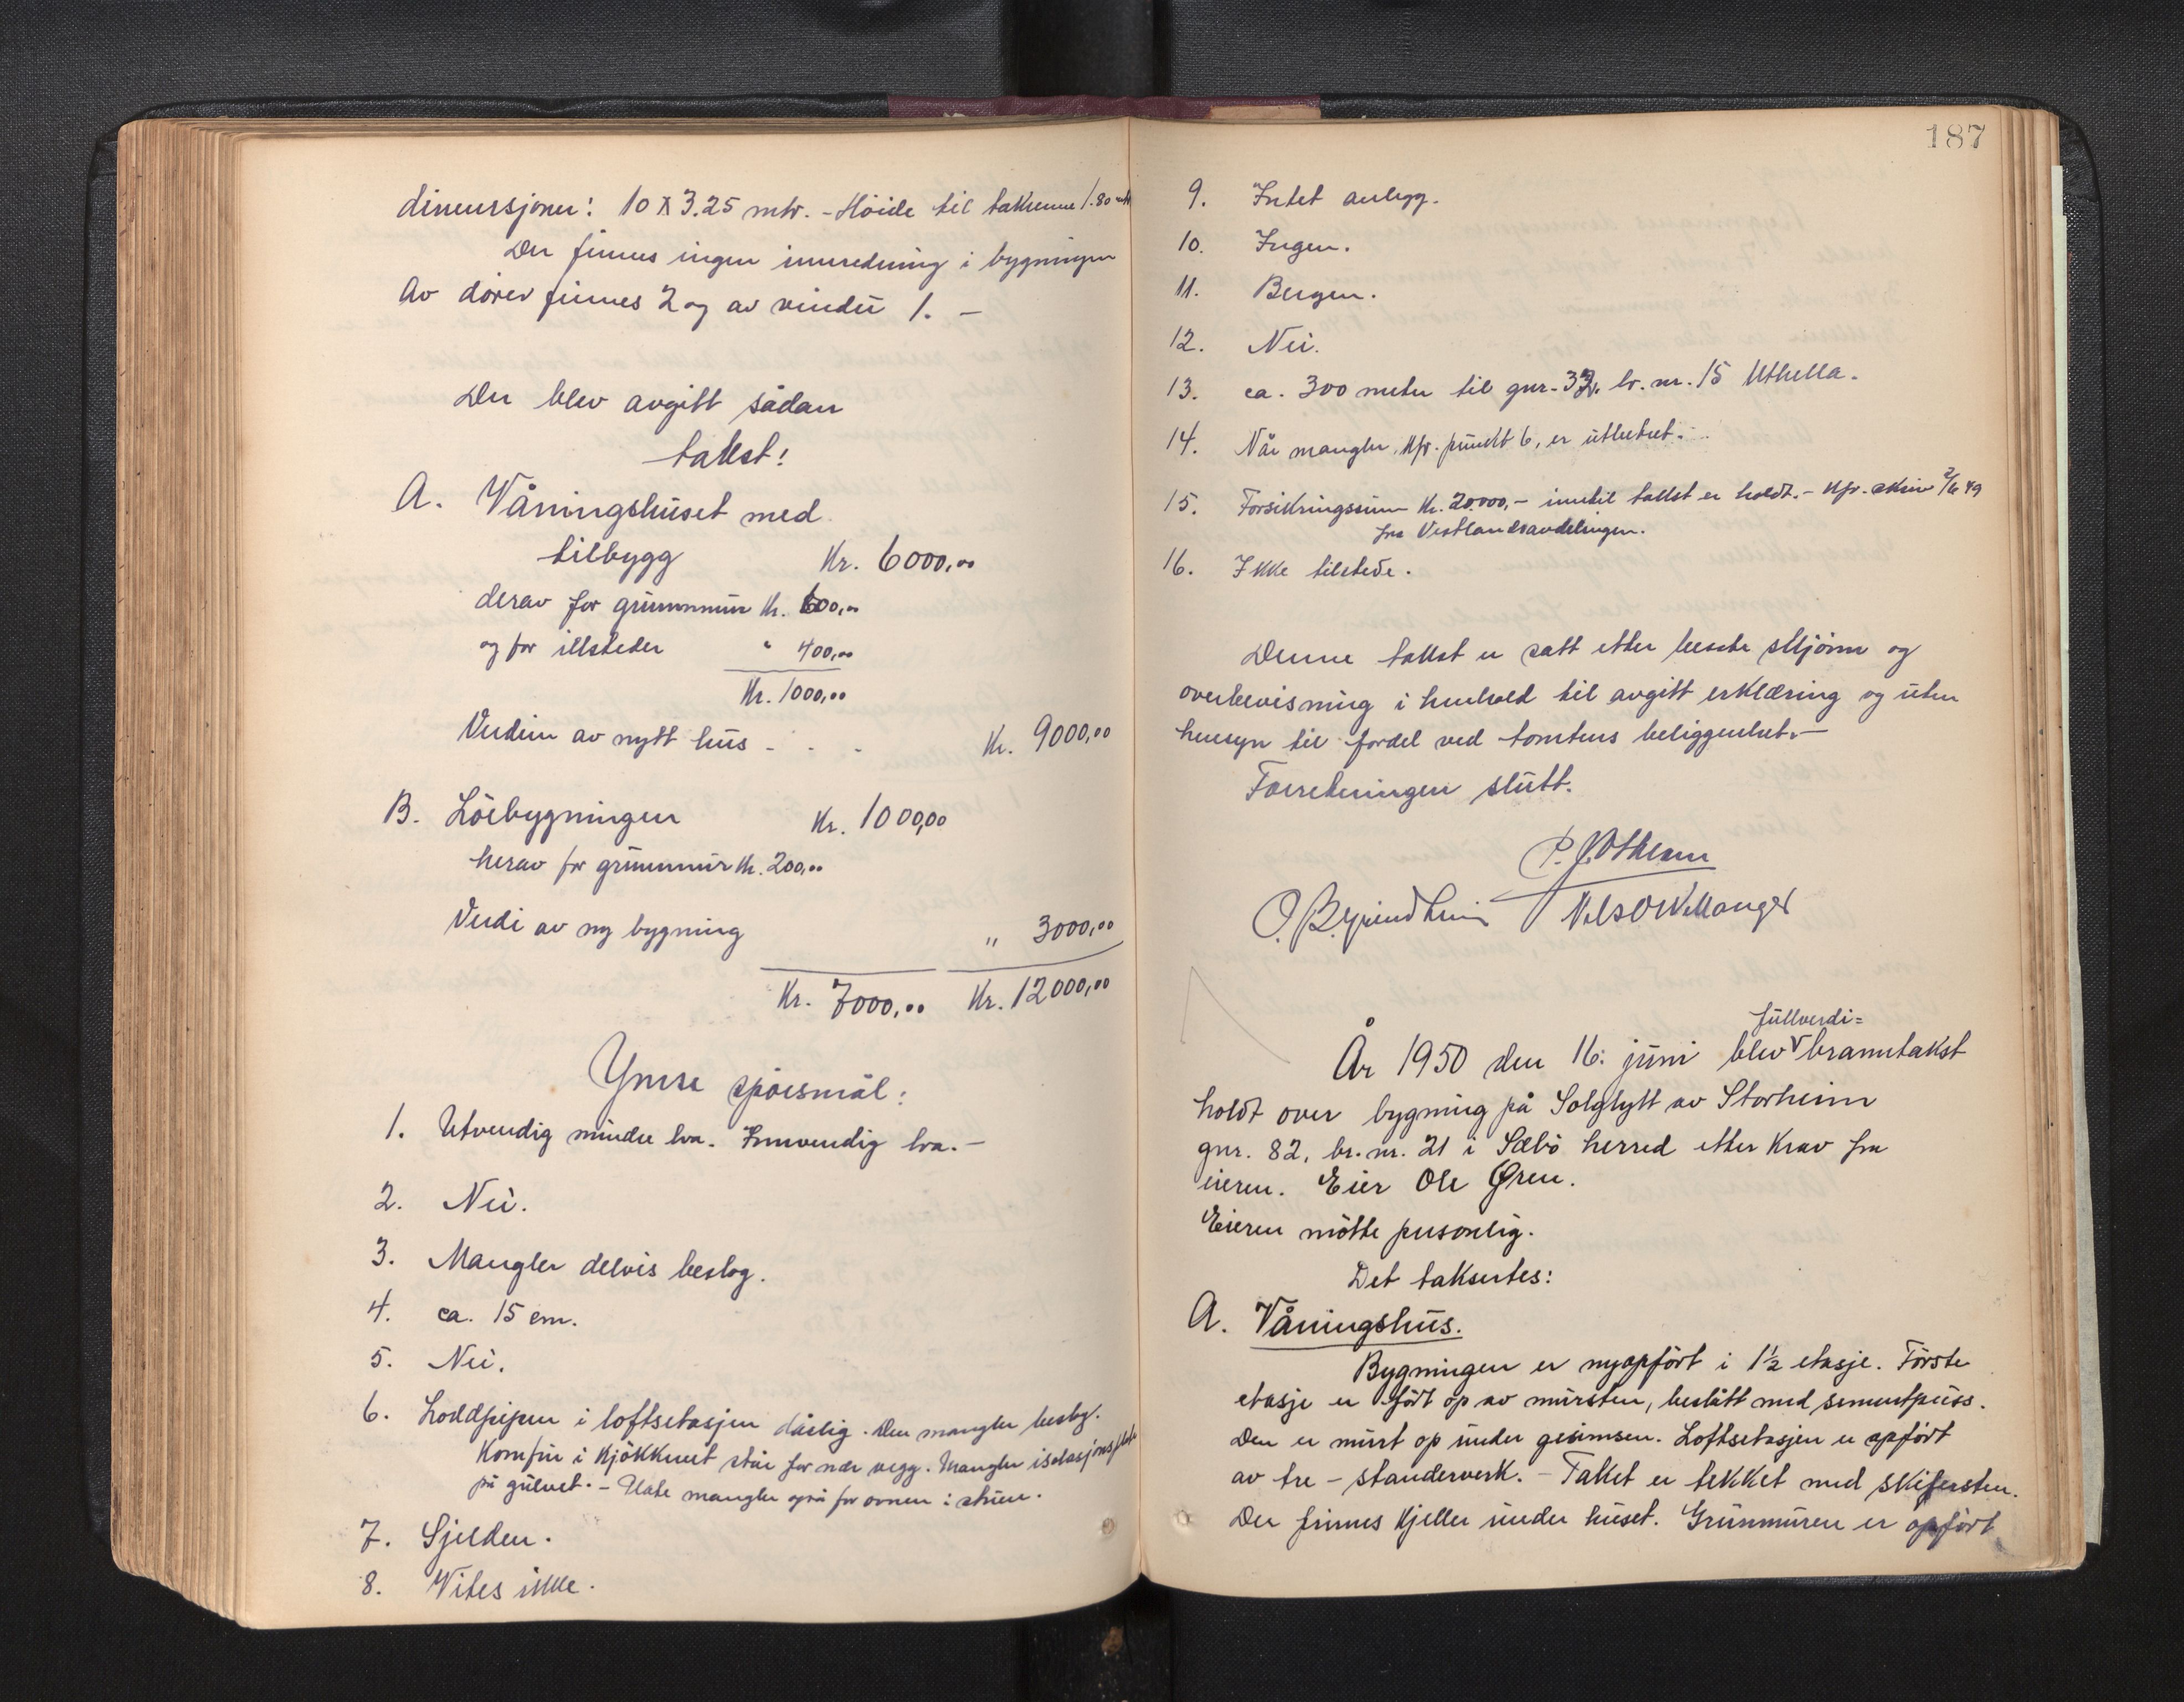 dimensjoner: 10 x 3.25 mtr. - Höide til takrenne 1.80 mtr
Der finnes ingen innredning i bygningen
Av dører finnes 2 og av vindu 1. -
Der blev avgitt sådan
takst:
A. Våningshuset med
tilbygg Kr. 6000,00
derav for grunnmur Kr. 600,00
og for illsteder " 400,00
Kr. 1000,00
Verdien av nytt hus - - - Kr. 9000,00
B. Löebygningen Kr. 1000,00
herav for grunnmur Kr. 200,00
Verdi av ny bygning " 3000,00
Kr. 7000,00 Kr. 12000,00
Ymse spörsmål:
1. Utvendig mindre bra. Innvendig bra. -
2. Nei.
3. Mangler delvis beslag.
4. ca. 15 cm.
5. Nei.
6. Loddpipen i loftsetasjen dårlig. Den mangler beslag.
Komfur i kjökkenet står for nær vegg. Mangler isolasjonsplate
på gulvet. - Plate mangler også for ovnen i stuen.
7. Sjelden.
8. Vites ikke.
187
9. Intet anlegg.
10. Ingen.
11. Bergen.
12. Nei.
13. ca. 300 meter til gnr. 33, br. nr. 15 Uthella.
14. Når mangler, kfr. punkt 6, er utbedret.
15. Forsikringssum Kr. 20.000,- inntil takst er holdt. - Kfr. skriv 2/6 49
fra Vestlandsavdelingen.
16. Ikke tilstede.
Denne takst er satt etter beste skjönn og
overbevisning i henhold til avgitt erklæring og uten
hensyn til fordel ved tomtens beliggenhet. -
Forretningen slutt.
Nils O Vollanger
fullverdi=
År 1950 den 16. juni blev branntakst
holdt over bygning på Solglytt av Storheim
gnr. 82, br. nr. 21 i Sæbö herred etter krav fra
eieren. Eier Ole Øren.
Eieren mötte personlig.
Det taksertes:
A. Våningshus.
Bygningen er nyopfört i 1½ etasje. Förste
etasje er fört op av mursten, beslått med sementpuss.
Den er murt op under gesimsen. Loftsetasjen er opfört
av tre - standerverk. - Taket er tekket med skifersten.
Der finnes kjeller under huset. Grunnmuren er opfört